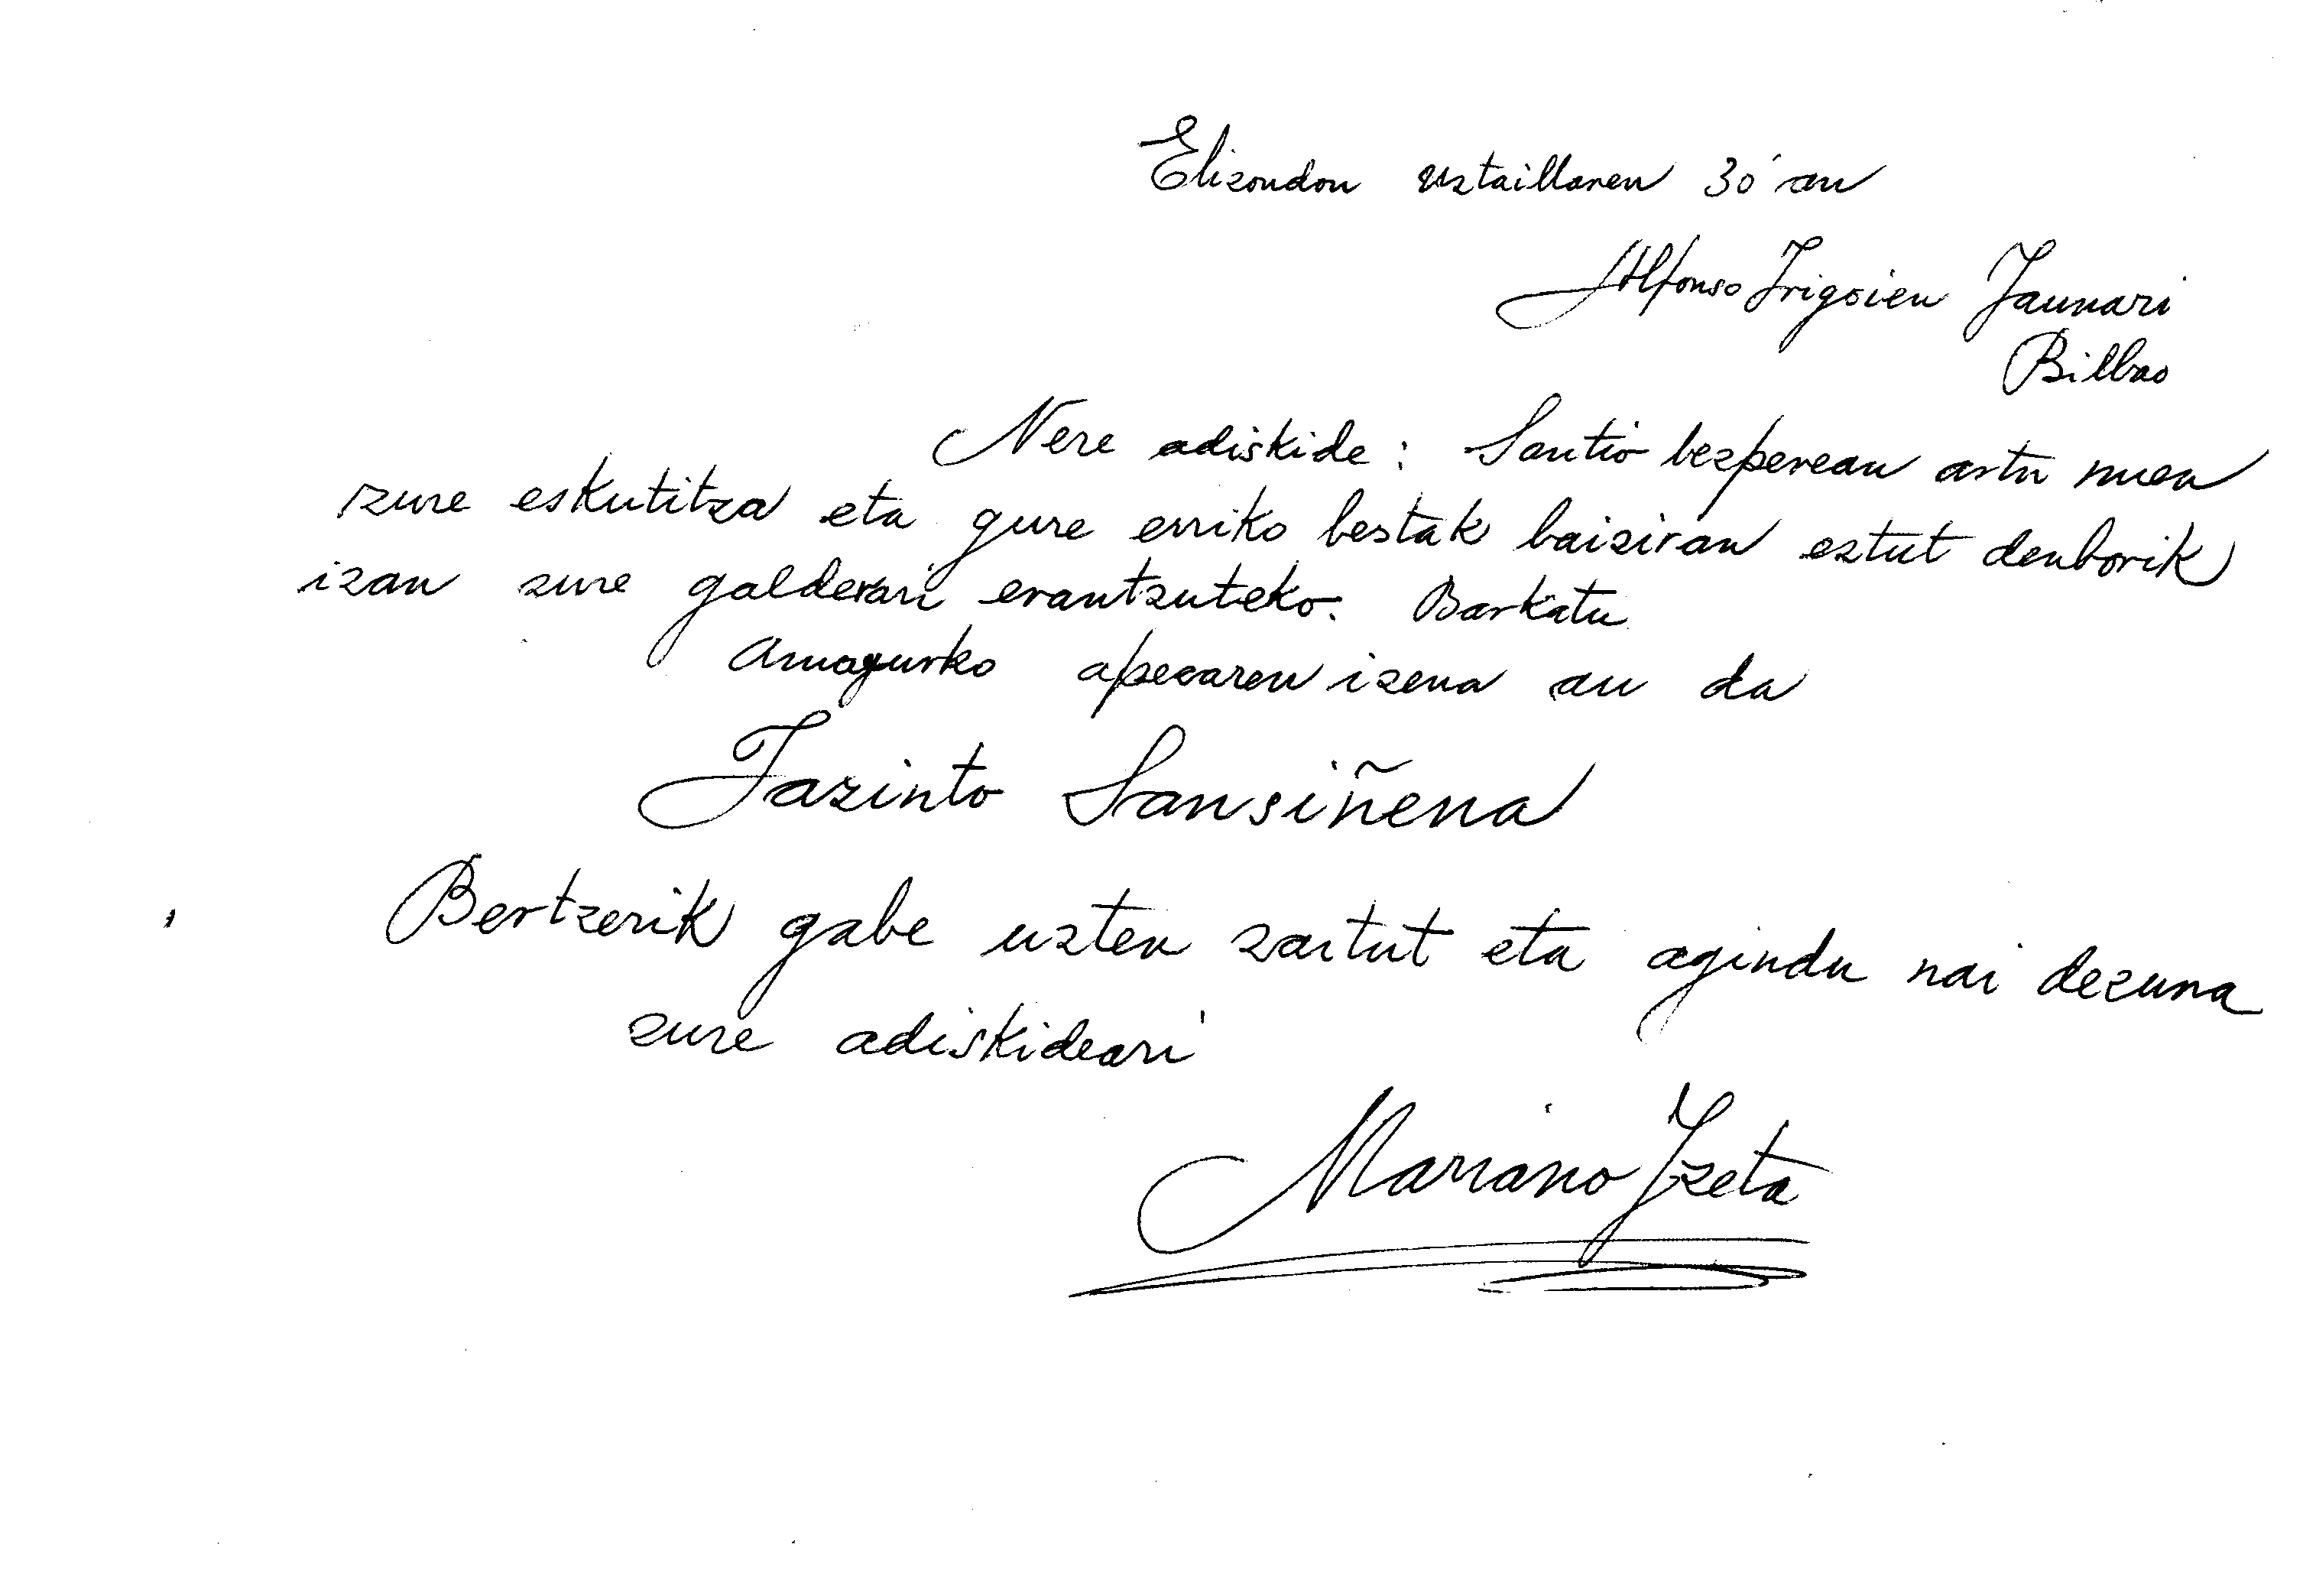 Elizondon uztaillaren 30'an
Alfonso Irigoien Jaunari
Bilbao
Nere adiskide: Santio bezperean artu nuen
zure eskutitza eta gure erriko bestak baiziran eztut denborik
izan zure galderari erantzuteko. Barkatu
Amayurko apezaren izena au da
Jazinto Sansiñena
Bertzerik gabe uzten zaitut eta agindu nai dezuna
zure adiskideari
Mariano Izeta